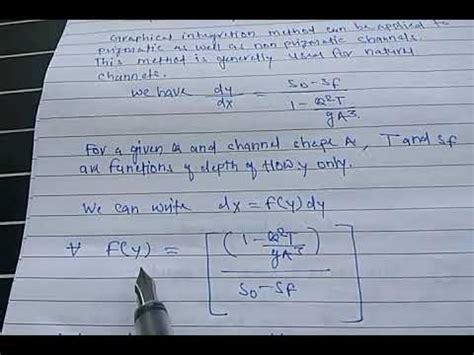 Graphical integration method can be applied to
prizmatic as well as non prizmatic channels.
This method is generally used for natural
channels.
we have dy/dx = (So-Sf)/(1-Q²T/gA³)
For a given Q and channel shape A, T and Sf
are functions of depth of flow y only.
We can write dx = f(y)dy
∀ f(y) = [(1-Q²T/gA³)/(So-Sf)]